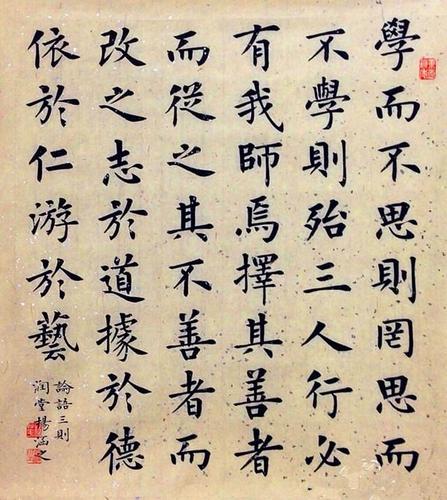 學而不思則罔思而
不學則殆三人行必
有我師焉擇其善者
而從之其不善者而
改之志於道據於德
依於仁游於藝
論語三則
潤堂楊涵之